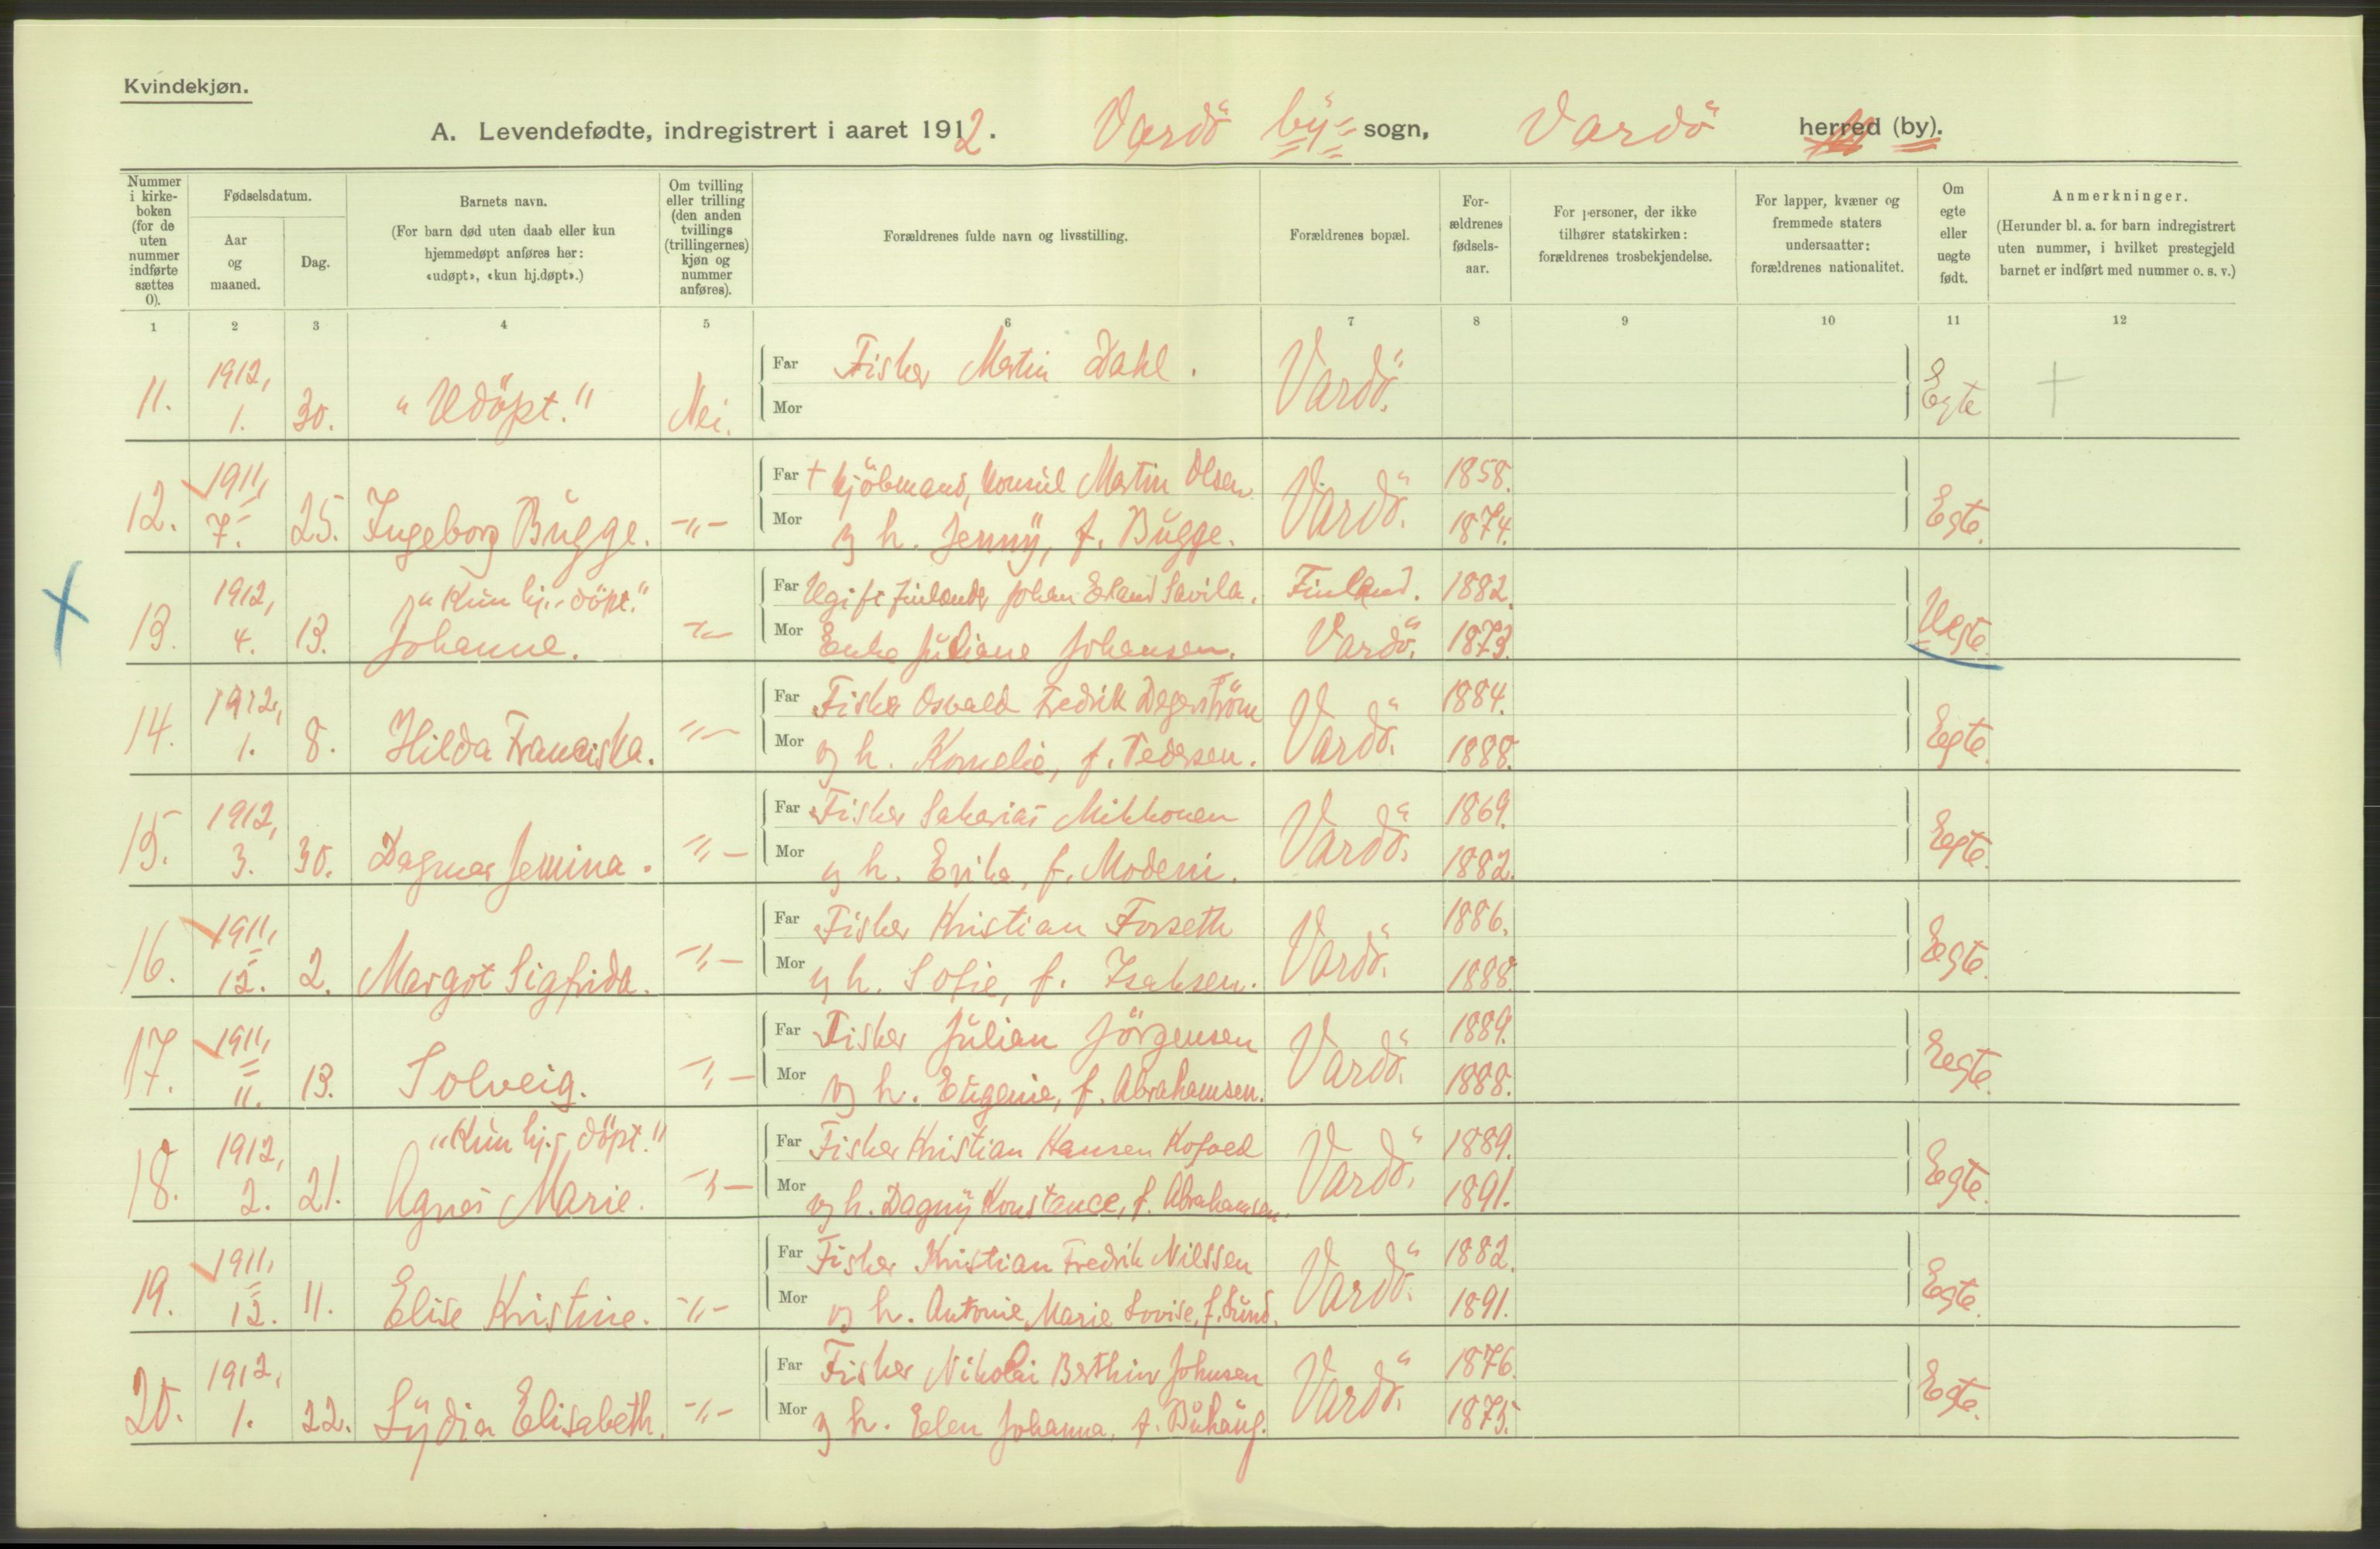 Kvindekjøn.
A. Levendefødte, indregistrert i aaret 1912. Vardö by sogn, Vardö herred (by).
Nummer i kirkeboken (for de uten nummer indførte sættes 0).
Fødselsdatum.
Aar og maaned.
Dag.
Barnets navn.
(For barn død uten daab eller kun hjemmedøpt anføres her: «udøpt», «kun hj.døpt».)
Om tvilling eller trilling (den anden tvillings (trillingernes) kjøn og nummer anføres).
Forældrenes fulde navn og livsstilling.
Forældrenes bopæl.
Forældrenes fødselsaar.
For personer, der ikke tilhører statskirken: forældrenes trosbekjendelse.
For lapper, kvæner og fremmede staters undersaatter: forældrenes nationalitet.
Om egte eller uegte født.
Anmerkninger.
(Herunder bl. a. for barn indregistrert uten nummer, i hvilket prestegjeld barnet er indført med nummer o. s. v.)
1 2 3 4 5 6 7 8 9 10 11 12
11. 1912, 1. 30. "Udöpt." Nei. Far Fisker Martin Dahl. Vardö. Egte +
Mor
12. 1911, 7. 25. Ingeborg Bugge. -"- Far + Kjöbmand, Konsul Martin Olsen Vardö. 1858. Egte.
Mor og h. Jenny, f. Bugge. 1874.
13. 1912, 4. 13. "Kun hj.-döpt." Johanne. -"- Far Ugift Finlænder Johan Erland Savila. Finland. 1882. Uegte.
Mor Enke Juliane Johansen. Vardö. 1873.
14. 1912, 1. 8. Hilda Franciska. -"- Far Fisker Osvald Fredrik Degerström Vardö. 1884. Egte.
Mor og h. Kornelie, f. Pedersen. 1888.
15. 1912, 3. 30. Dagmar Jemina. -"- Far Fisker Sakarias Mikkonen Vardö. 1869. Egte.
Mor og h. Erika, f. Modeni. 1882.
16. 1911, 12. 2. Margot Sigfrida. -"- Far Fisker Kristian Forseth Vardö. 1886. Egte.
Mor og h. Sofie, f. Isaksen. 1888.
17. 1911, 11. 13. Solveig. -"- Far Fisker Julian Jörgensen Vardö. 1889. Egte.
Mor og h. Eugenie, f. Abrahamsen. 1888.
18. 1912, 2. 21. "Kun hj.-döpt." Agnes Marie. -"- Far Fisker Kristian Hansen Kofoed Vardö. 1889. Egte.
Mor og h. Dagny Konstance, f. Abrahamsen. 1891.
19. 1911, 12. 11. Elise Kristine. -"- Far Fisker Kristian Fredrik Nilssen Vardö. 1882. Egte.
Mor og h. Antonie Marie Lovise, f. Lund. 1891.
20. 1912, 1. 22. Lydia Elisabeth. -"- Far Fisker Nikolai Berthin Johnsen Vardö. 1876. Egte.
Mor og h. Elen Johanna, f. Buhaug. 1875.